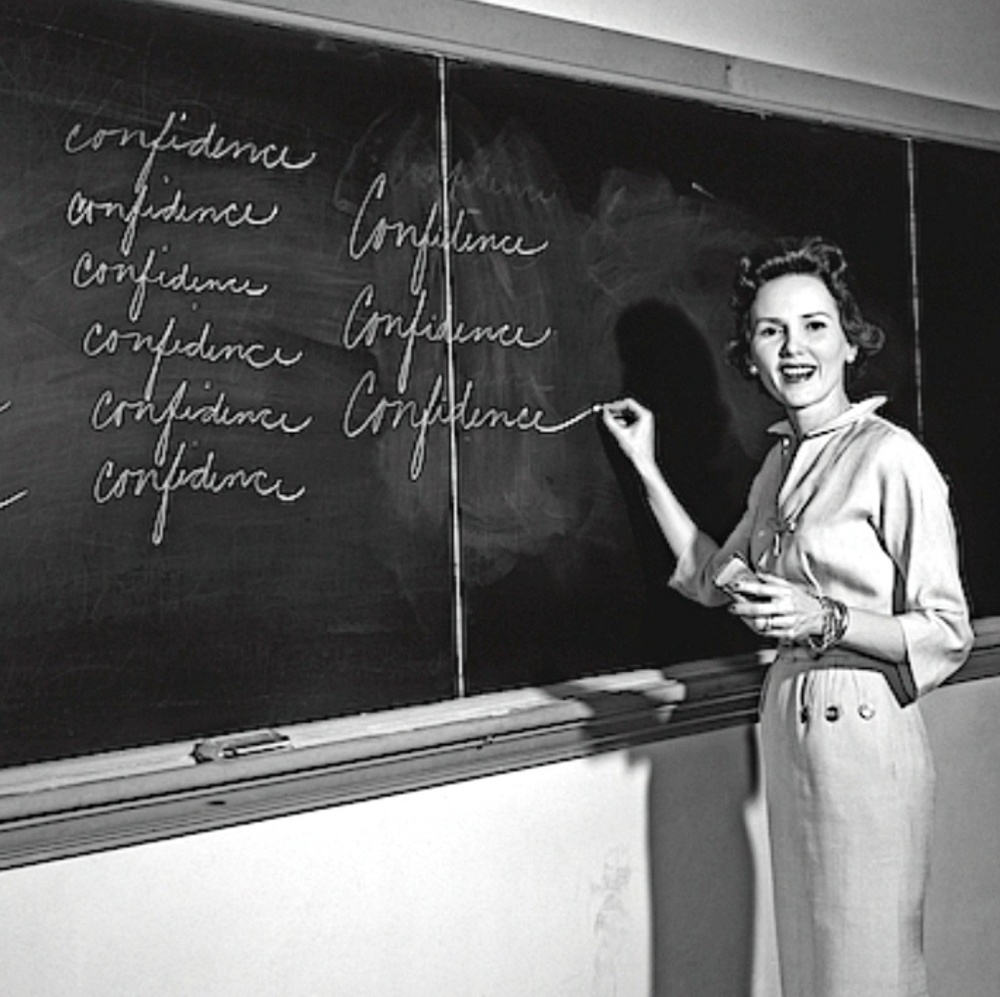 confidence
confidence
confidence
confidence
confidence
confidence
Confidence
Confidence
Confidence